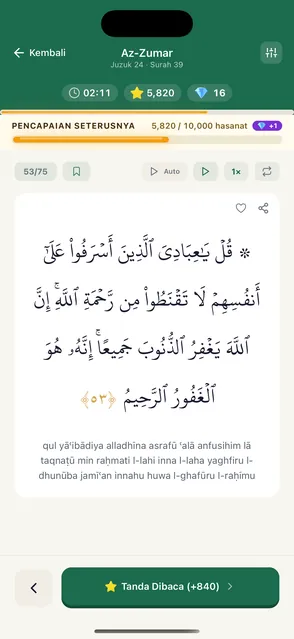 Kembali
Az-Zumar
Juzuk 24 · Surah 39
02:11
5,820
16
PENCAPAIAN SETERUSNYA
5,820 / 10,000 hasanat
+1
53/75
Auto
1×
۞ قُلْ يَـٰعِبَادِىَ ٱلَّذِينَ أَسْرَفُوا۟ عَلَىٰٓ
أَنفُسِهِمْ لَا تَقْنَطُوا۟ مِن رَّحْمَةِ ٱللَّهِ ۚ إِنَّ
ٱللَّهَ يَغْفِرُ ٱلذُّنُوبَ جَمِيعًا ۚ إِنَّهُۥ هُوَ
ٱلْغَفُورُ ٱلرَّحِيمُ ﴿٥٣﴾
qul yāʿibādiya alladhīna asrafū ʿalā anfusihim lā
taqnaṭū min raḥmati l-lahi inna l-laha yaghfiru l-
dhunūba jamīʿan innahu huwa l-ghafūru l-raḥīmu
Tanda Dibaca (+840)